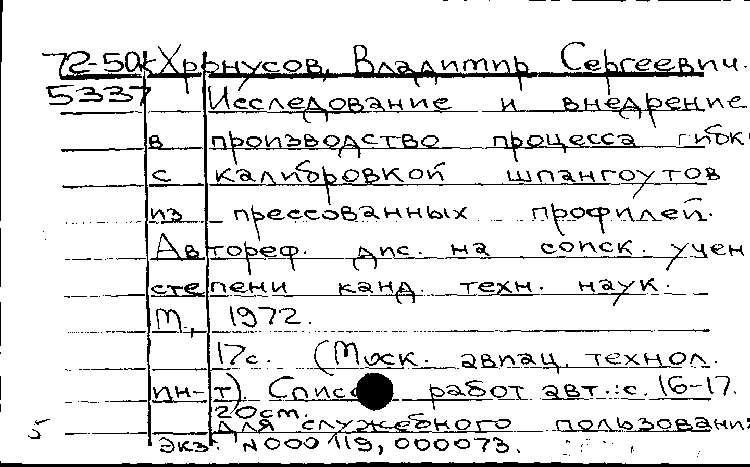 72-50к Хронусов, Владимир Сергеевич.
5337 Исследование и внедрение
в производство процесса гибк
с калибровкой шпангоутов
из прессованных профилей.
Автореф. дис. на соиск. учен
степени канд. техн. наук.
М., 1972.
17с. (Моск. авиац. технол.
ин-т). Списо работ авт.: с. 16-17.
20см.
Для служебного пользования
Экз. N000119, 000073.